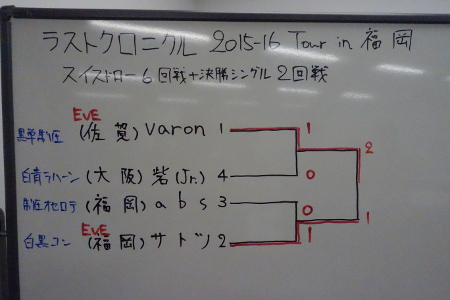 ラストクロニクル 2015-16 Tour in 福岡
スイスドロー6回戦+決勝シングル2回戦
EvE
黒単制圧 (佐賀) Varon 1 1
2
白青ラハーン (大阪) 砦(Jr.) 4 0
制圧オセロテ (福岡) abs 3 0
EvE
1
白黒コン (福岡) サトツ 2 1